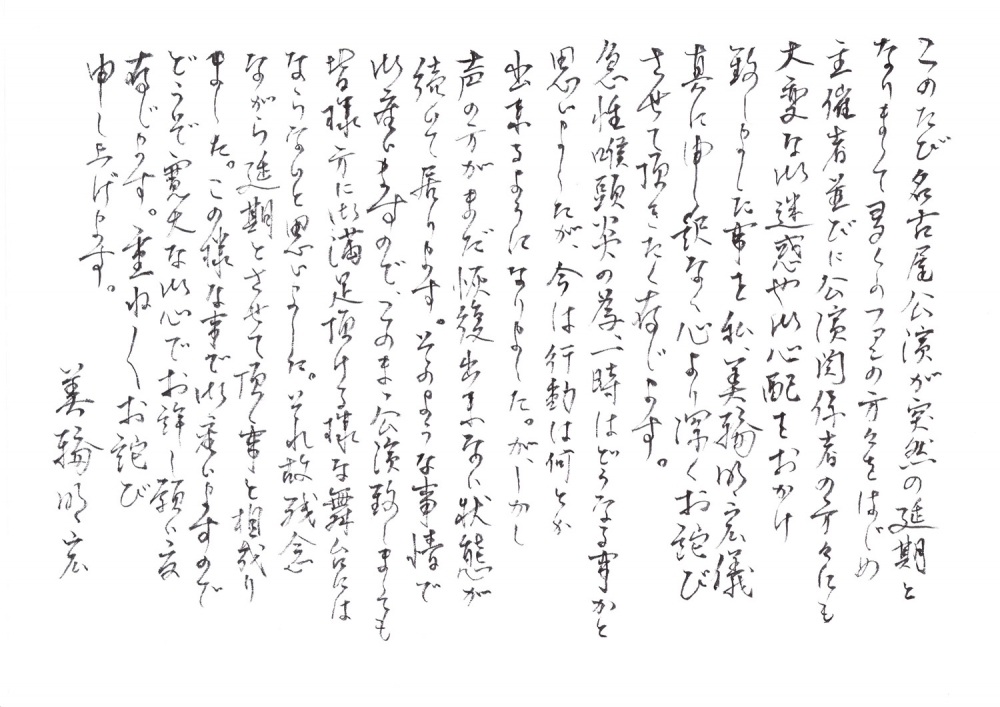 このたび名古屋公演が突然の延期と
なりまして多くのファンの方々をはじめ
主催者並びに公演関係者の方々にも
大変な御迷惑や御心配をおかけ
致しました事を私、美輪明宏儀
真に申し訳なく心より深くお詫び
させて頂きたく存じます。
急性喉頭炎の為、一時はどうなる事かと
思いましたが、今は行動は何とか
出来るようになりました。が、しかし
声の方がまだ恢復出来ない状態が
続いて居ります。そのような事情で
御座いますので、このまゝ公演致しましても
皆様方に御満足頂ける様な舞台には
ならないと思いました。それ故残念
ながら延期とさせて頂く事と相成り
ました。この様な事で御座いますので
どうぞ寛大な御心でお許し願い度
存じます。重ね〱お詫び
申し上げます。
美輪明宏